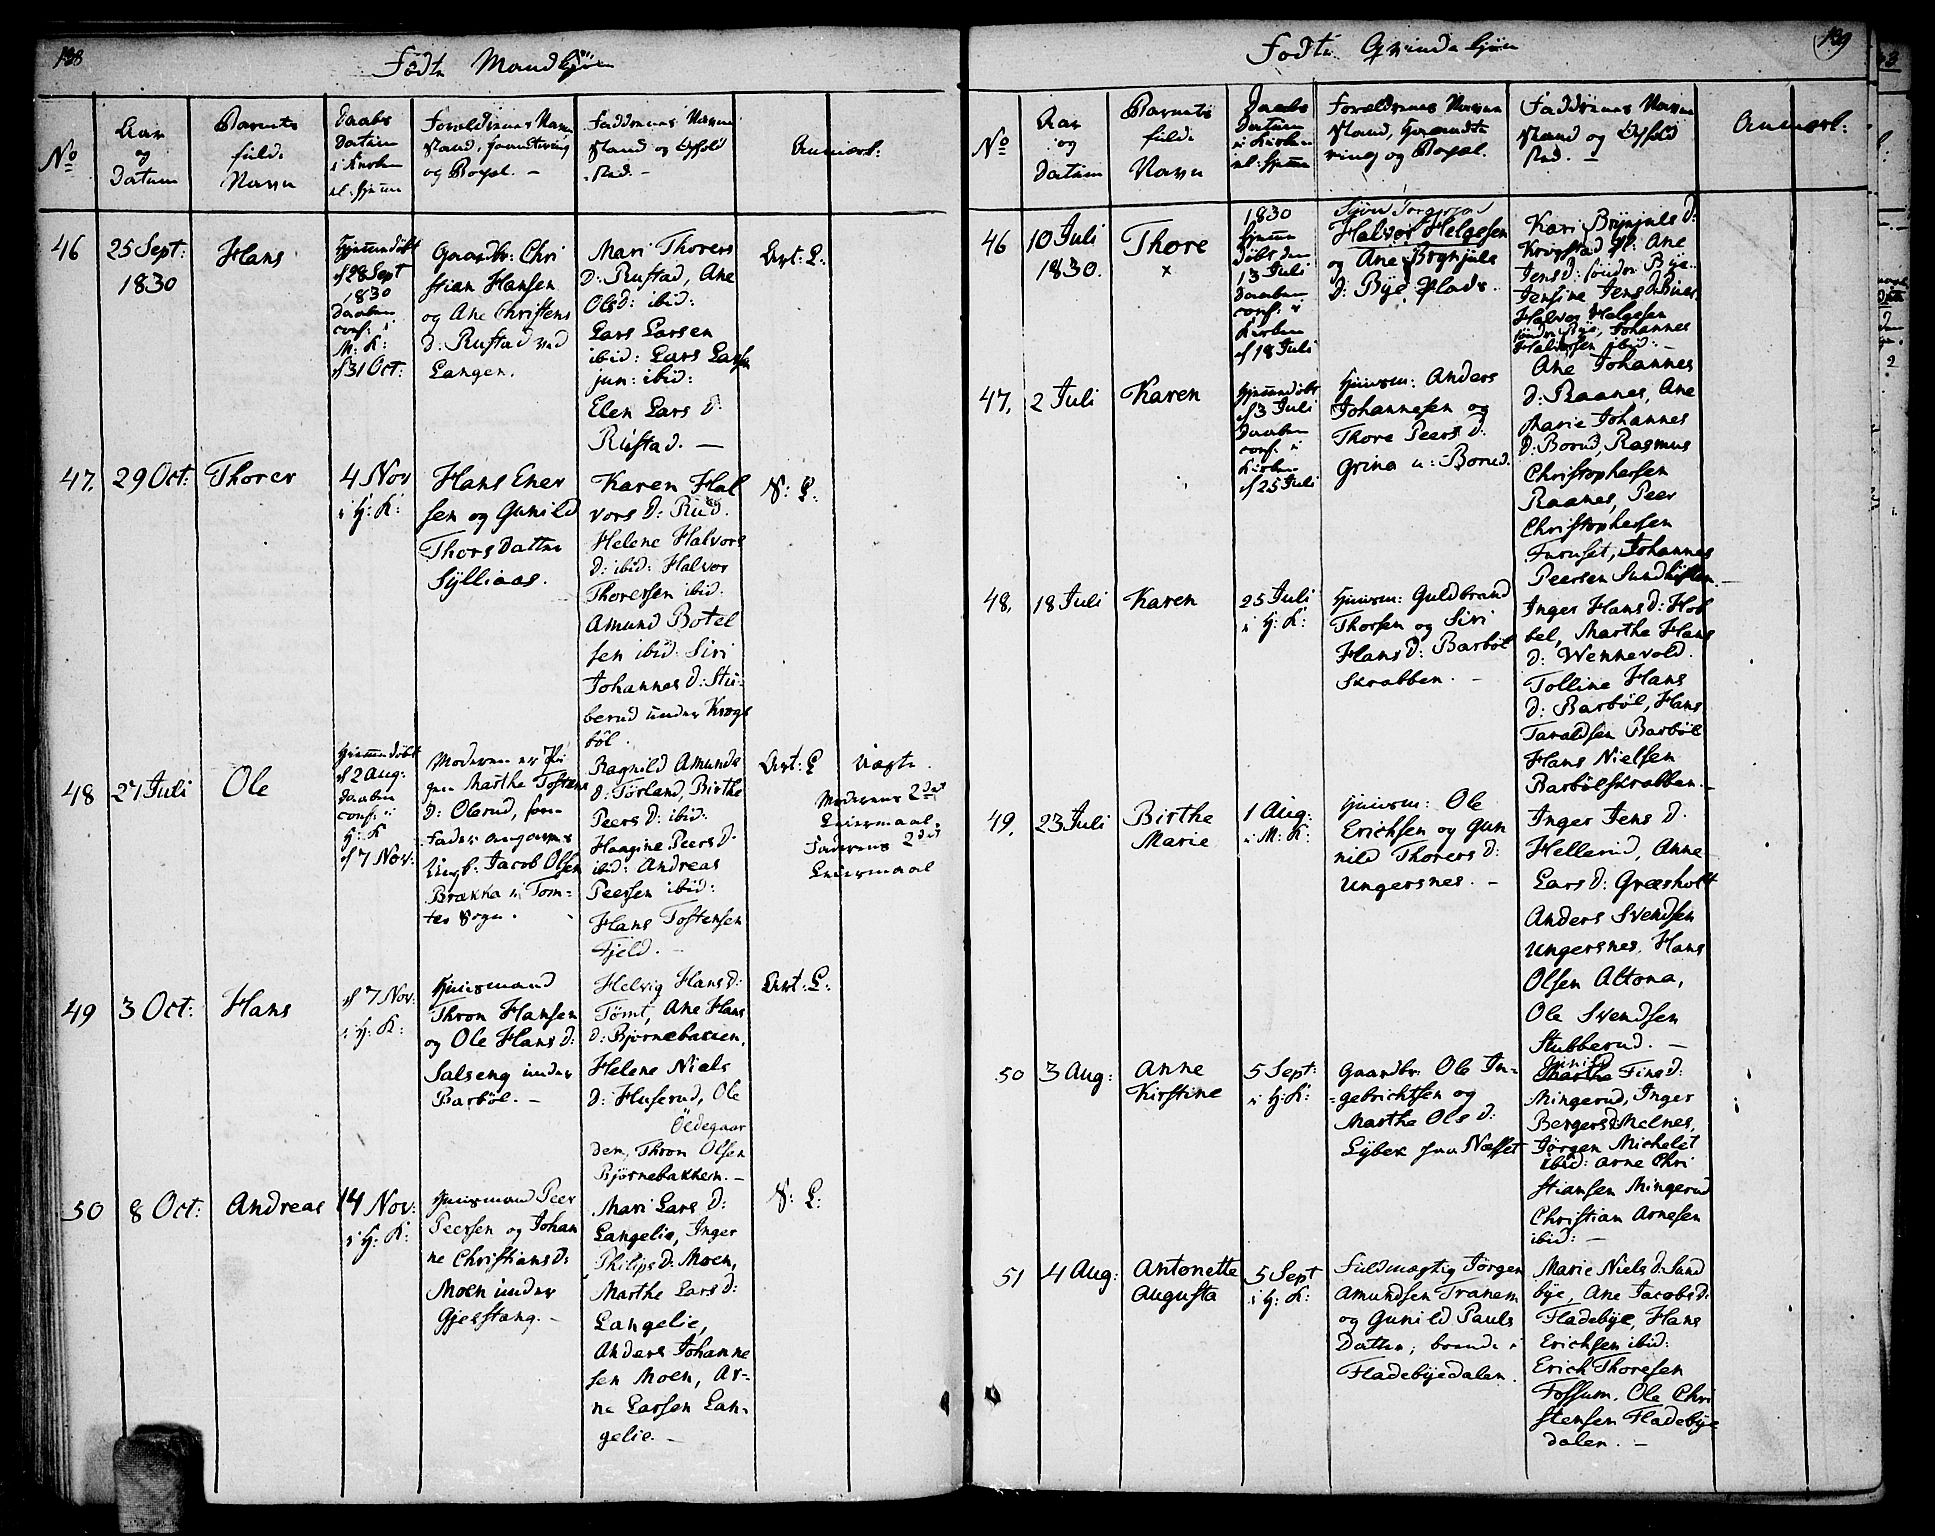 138
Födte Mandkjön
No
Aar
og
Datum
Barnets
fulde
Navn
Daabs
Datum
i Kirken
el: Hjemme
Forældrenes Navn
Stand, Haandtering
og Bopæl. —
Faddernes Navne
Stand og Ophold
Sted. —
Anmærk:
46
25 Sept:
1830
Hans
Hjemmedöbt
d 28 Sept
1830
Daaben
conf: i
M: K:
d 31 Oct:
Gaardbr: Chri
stian Hansen
og Ane Christens
D: Rustad ved
Langen.
Mari Thorers
D: Rustad, Ane
Olsd: ibid:
Lars Larsen
ibid: Lars Larsen
jun: ibid:
Elen Lars D:
Rustad. —
Art: L:
47.
29 Oct:
Thorer
4 Nov
i H: K:
Hans Ener
sen og Gunild
Thorsdatter
Sylliaas.
Karen Hal
vors D: Rud.
Helene Halvors
D: ibid: Halvor
Thoresen ibid.
Amund Botel
sen ibid: Siri
Johannes D: Stu-
berud under Krogs
böl.
N: L:
48
27 Juli
Ole
Hjemmedöbt
d 2 Aug:
Daaben
conf: i
H: K
d 7 Nov:
Moderen er Pi
gen Marthe Tostens
D: Olerud, som
Fader angives
Ungk: Jacob Olsen
Brække i Tom-
ter Sogn.
Ragnild Amunds
D: Törland, Birthe
Peers D: ibid:
Haagine Peers D:
ibid: Andreas
Peersen ibid:
Hans Tostensen
Fjeld. —
Art: L
Uægte.
Moderens 2det
Leiermaal.
Faderens 2det
Leiermaal
49
3 Oct:
Hans
d 7 Nov:
i H: K:
Huusmand
Thron Hansen
og Ole Hans D:
Salseng under
Barböl. —
Helvig Hans D:
Tömt, Ane Hans
D: Bjornebakken,
Helene Niels
D: Huserud, Ole
Ödegaar
den, Thron Olsen
Björnebakken. —
Art: L:
50
8 Oct:
Andreas
14 Nov:
i H: K:
Huusmand Peer
Peersen og Johan
ne Christians D:
Moen under
Gjesstang. —
Mari Lars D:
Langelie, Inger
Philips D: Moen,
Marthe Lars D:
Langelie,
Anders Johanne
sen Moen, Ar-
ne Larsen Lan-
gelie. —
N: L:
139
Födte Qvindekjön
No
Aar
og
Datum
Barnets
fulde
Navn
Daabs
Datum
i Kirken
el: Hjemme
Forældrenes Navne
Stand, Haandte
ring og Bopæl.
Faddernes Navne
Stand og Opholds
Sted. —
Anmærk:
46
10 Juli
1830.
Thore
x
1830
Hjemme
döbt den
13 Juli
Daaben
conf: i
Kirken
d 18 Juli
Halvor Helgesen
og Ane Brynjuls
D: Bye Plads.
Kari Brynjuls D:
Krogstad Pl: Ane
Jens D: sondr Bye.
Jensine Jens D ibid:
Halvor Helgesen
söndr Bye, Johannes
Halvorsen ibid: —
47.
2 Juli
Karen
Hjemmedöbt
d 3 Juli
Daaben
conf: i
Kirken
d 25 Juli
Huusm: Anders
Johannesen og
Thore Peers D:
Grina u: Borud.
Ane Johannes
D: Raanes, Ane
Marie Johannes
D: Borud, Rasmus
Christophersen
Raanes, Peer
Christophersen
Furuset, Johannes
Peersen Sundhusten —
48.
18 Juli
Karen
25 Juli
i H: K:
Huusm: Guldbrand
Thorsen og Siri
Hans D: Barböl
Skrabben. —
Inger Hans D: Hob
bel, Marthe Hans
D: Wennevold.
Tolline Hans
D: Barböl, Hans
Taraldsen Barböl
Hans Nielsen
Barbölskrabben. —
49.
23 Juli
Birthe
Marie
1 Aug:
i M: K:
Huusm: Ole
Erichsen og Gun
nild Thorers D:
Ungersnes. —
Inger Jens D:
Hellerud, Anne
Lars D: Græsholt
Anders Svendsen
Ungersnes, Hans
Olsen Altona,
Ole Svendsen
Stubberud. —
50
3 Aug:
Anne
Kirstine
5 Sept:
i H: K:
Gaardbr: Ole In-
gebrichtsen og
Marthe Ols D:
Lybek paa Næsset
Gunild
Marthe Fins D:
Mingerud, Inger
Bergers D Melnes,
Jörgen Michelet
ibid: Arne Chri
stiansen Mingerud
Christian Arnesen
ibid: —
51
4 Aug:
Antonette
Augusta
5 Sept
i H: K:
Fuldmægtig Jörgen
Amundsen Tranem
og Gunild Pauls
Datter, boende i
Fladebyedalen.
Marie Niels D: Sund
bye, Ane Jacobs D:
Fladebye, Hans
Erichsen ibid:
Erich Thoresen
Fossum, Ole Chri
stensen Fladebye
dalen. —